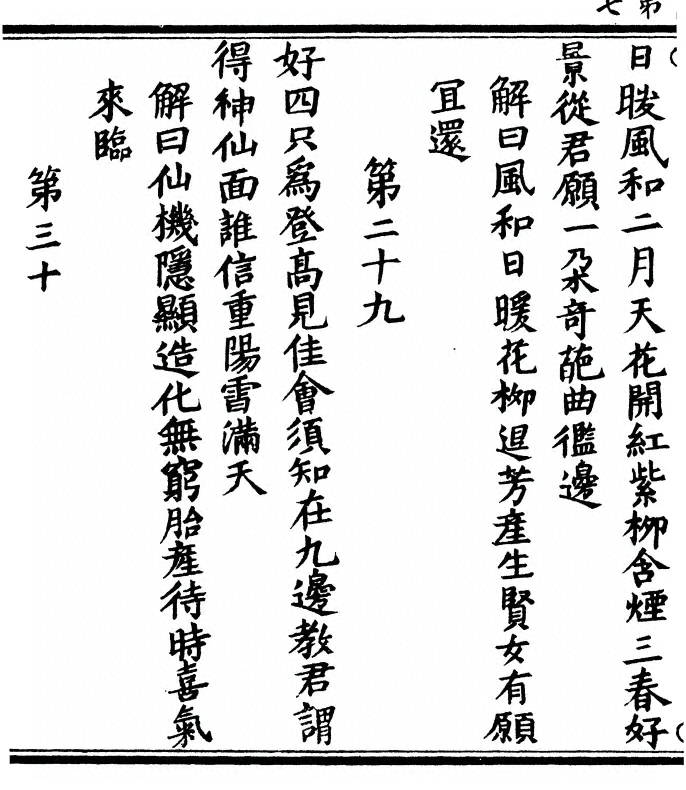 第
七
日暖風和二月天花開紅紫柳含煙三春好
景從君願一朶奇葩曲檻邊
解曰風和日暖花柳逞芳產生賢女有願
冝還
第二十九
好四只為登高見佳會須知在九邊教君謂
得神仙面誰信重陽雪滿天
解曰仙機隱顯造化無窮胎產待時喜氣
來臨
第三十